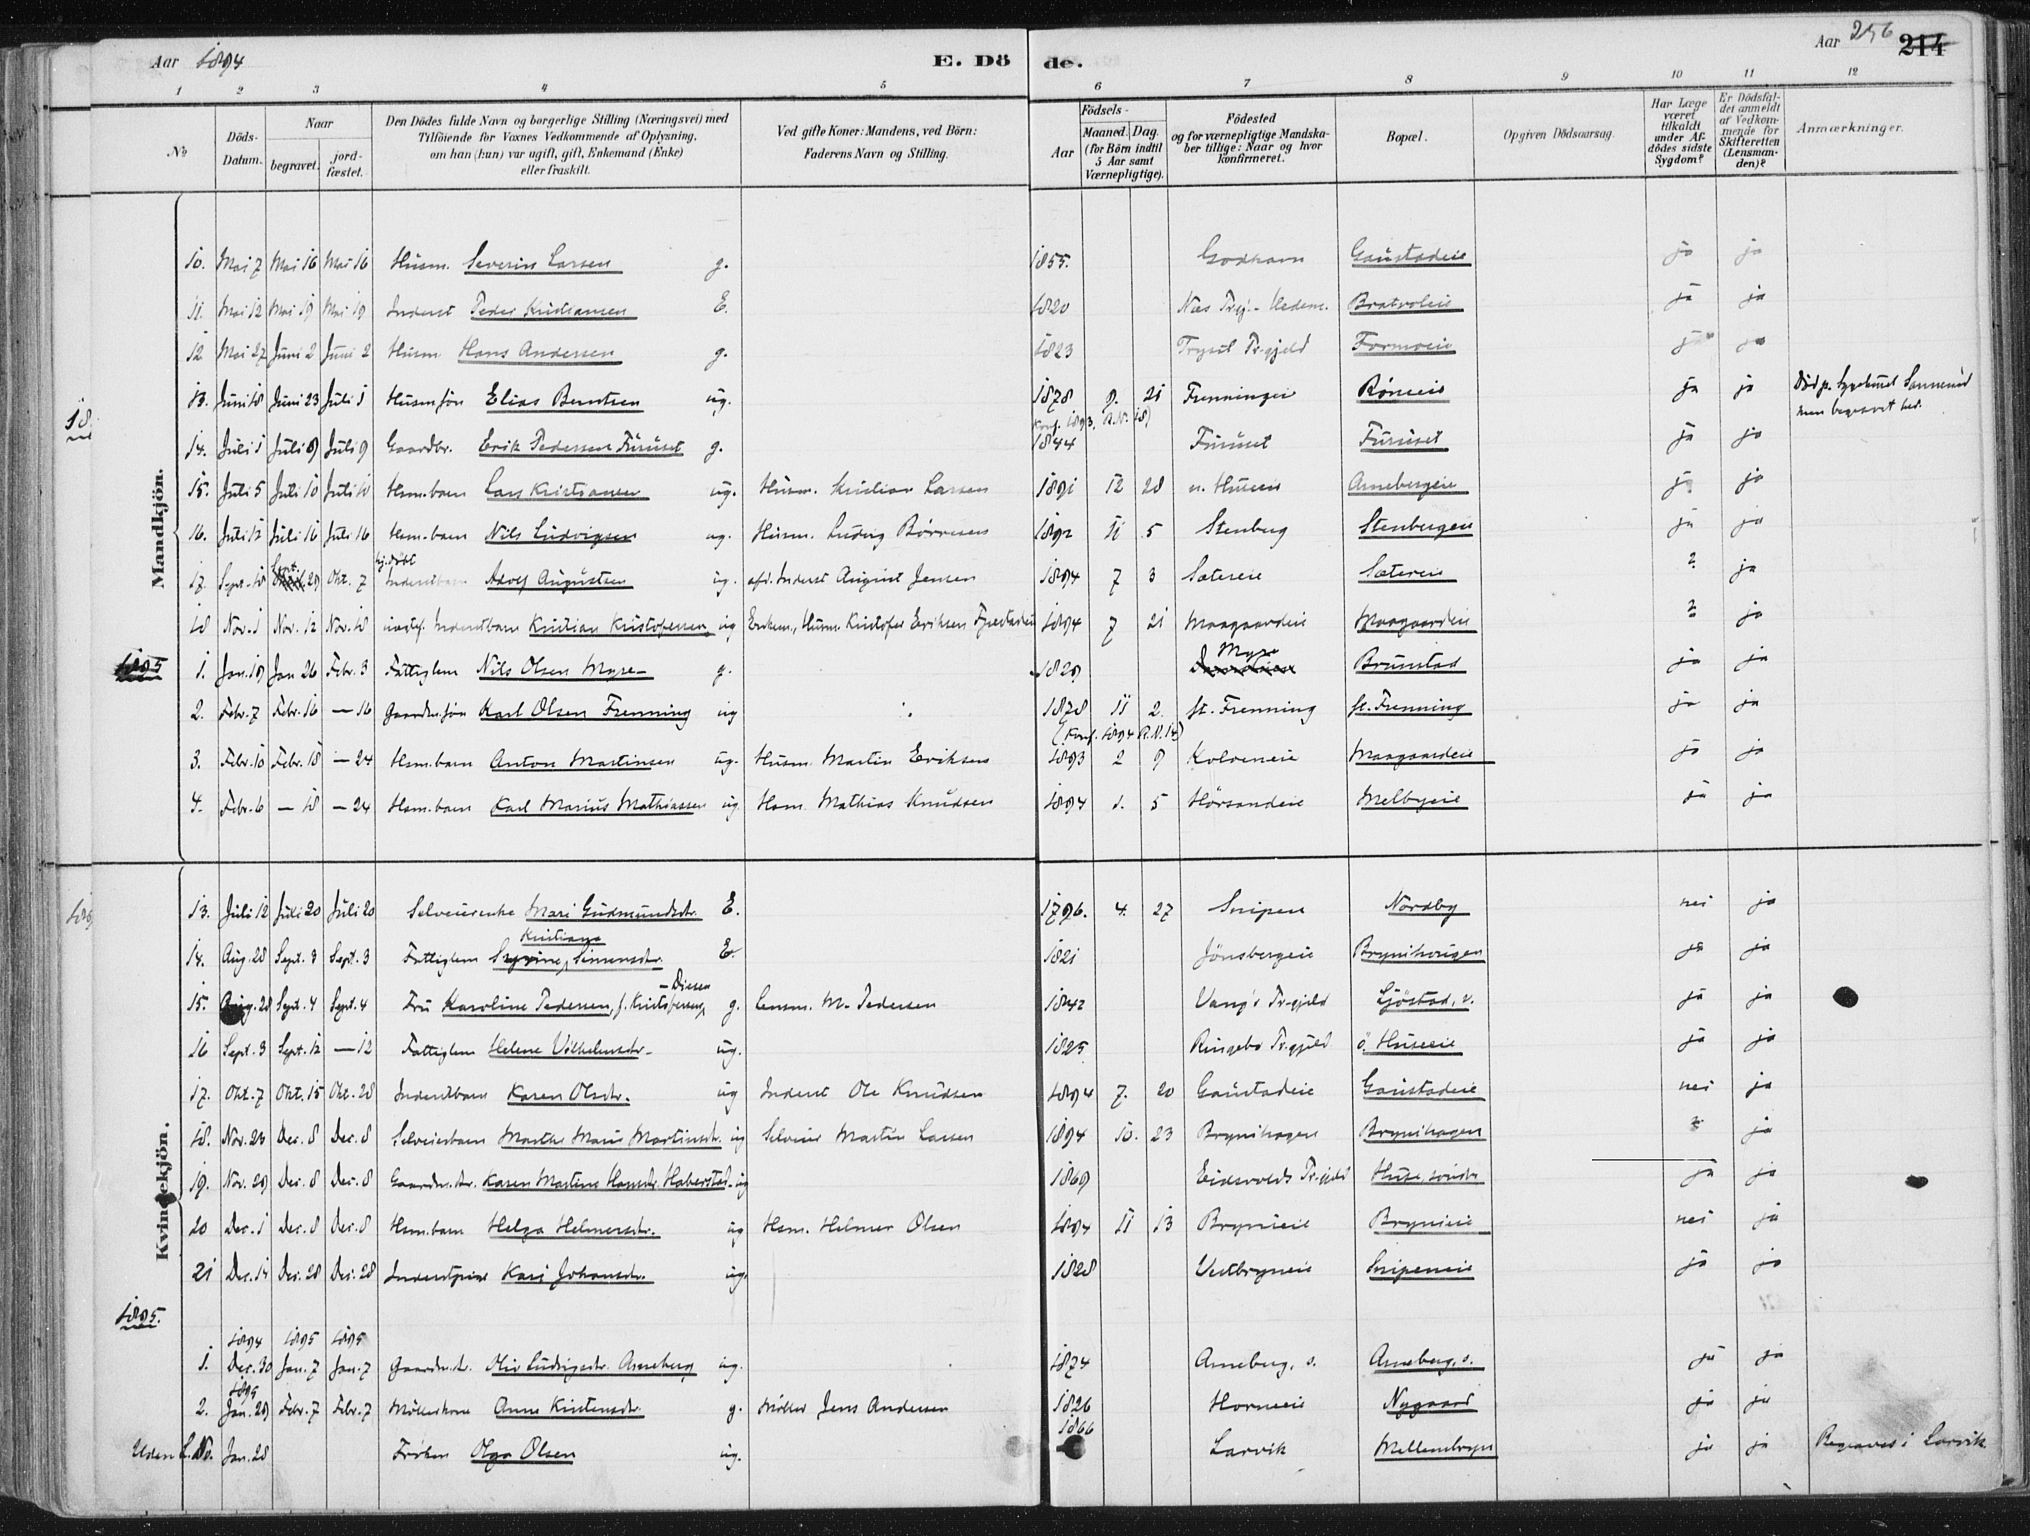 Aar 1894 E. Döde. Aar 256 214
1 2 3 4 5 6 7 8 9 10 11 12
No Döds-Datum. Naar begravet. jordfæstet. Den Dödes fulde Navn og borgerlige Stilling (Næringsvei) med Tilföiende for Voxnes Vedkommende af Oplysning, om han (hun) var ugift, gift, Enkemand (Enke) eller fraskilt. Ved gifte Koner: Mandens, ved Börn: Faderens Navn og Stilling. Födsels- Aar Maaned. Dag. (for Börn indtil 5 Aar samt Værnepligtige). Födested og for værnepligtige Mandskaber tillige: Naar og hvor konfirmeret. Bopæl. Opgiven Dödsaarsag. Har Læge været tilkaldt under Afdödes sidste Sygdom? Er Dödsfaldet anmeldt af Vedkommende for Skifteretten (Lensmanden)? Anmærkninger.
Mandkjön.
10. Mai 7 Mai 16 Mai 16 Husm. Severin Larsen g. 1855. Godhavn Gaustadeie ja ja
11. Mai 12 Mai 19 Mai 19 Inderst Peder Kristiansen E. 1820 Næs Prgj. - Hedem. Bratvoleie ja ja
12 Mai 27 Juni 2 Juni 2 Husm. Hans Andersen g. 1823 Trysil Pr.gjeld Formoeie ja ja
13. Juni 18 Juni 23 Juli 1 Husm.søn Elias Berntsen ug. 1878 9. 21 Frenningeie Röneeie ja ja Död p. Sygehuset Sannerud men begravet her.
(Konf. 1893, R.N. 18)
14. Juli 1 Juli 9 Juli 9 Gaardbr. Erik Pedersen Furuset g. 1844 Furuset Furuset ja ja
15. Juli 5 Juli 10 Juli 10 Hsm.barn Lars Kristiansen ug. Husm. Kristian Larsen 1891 12 28 n. Huseeie Arnebergeie ja ja
16. Juli 12 Juli 16 Juli 16 Hsm.barn Nils Ludvigsen ug. Husm. Ludvig Börresen 1892 11 5 Stenberg Stenbergeie ja ja
17. Sept. 18 Sept. 29 Okt. 7 Inderstbarn Adolf Augustsen ug. afd. Inderst August Jensen 1894 7 3 Sætereie Sætereie ? ja
18 Nov. 1 Nov. 12 Nov. 18 Inderstbarn Kristian Kristofersen ug Enkem., Husm. Kristofer Eriksen 1894 7 21 Maagaardeie Maagaardeie ? ja
1895
1. Jan. 19 Jan 26 Febr. 3 Fattiglem Nils Olsen Myre g. 1829 Myre Brunstad ja ja
2. Febr. 7 Febr. 16 — 16 Gaardm.søn Karl Olsen Frenning ug 1878 11 2. st. Frenning st. Frenning ja ja
(Konf. 1894 R.N. 14)
3. Febr. 10 Febr. 18 — 24 Hsm.barn Anton Martinsen ug. Husm. Martin Eriksen 1893 2 9 Kolveneie Maagaardeie ja ja
4. Febr. 6 — 18 — 24 Hsm.barn Karl Marius Mathiassen ug. Hsm. Mathias Knudsen 1894 1. 5 Hörsandeie Melbyeie ja ja
Kvindekjön.
13. Juli 12 Juli 20 Juli 20 Selveierenke Mari Gudmundsdtr. E. 1796. 4. 27 Snipen Nordby nei ja
14. Aug. 28 Sept. 3 Sept. 3 Fattiglem Kristiane Simensdtr. E. 1821 Jönsbergeie Brynihaugen ja ja
15. Aug. 28 Sept. 4 Sept. 4 Fru Karoline Pedersen, f. Kristofersen - Diesen g. Lensm. M. Pedersen 1842 Vang's Pr.gjeld Gjöstad, v. ja ja
16 Sept. 3 Sept. 12 — 12 Fattiglem Helene Vilhelmsdtr. ug. 1825 Ringebo Pr.gjeld ö. Huseeie ja ja
17. Okt. 7 Okt. 15 Okt. 28 Inderstbarn Karen Olsdtr. ug Inderst Ole Knudsen 1894 7. 20 Gaustadeie Gaustadeie nei ja
18. Nov. 23 Dec. 8 Dec. 8 Selveierbarn Marthe Marie Martinsdtr. ug Selveier Martin Larsen 1894 10. 23 Brynihagen Brynihagen ? ja
19. Nov. 29 Dec. 8 Dec. 8 Gaardm.dtr. Karen Martine Hansdtr. Haberstad ug 1869 Eidsvolds Pr.gjeld Huse, söndre ja ja
20 Dec. 1 Dec. 8 Dec. 8 Hsm.barn Helga Helmersdtr. ug Hsm. Helmer Olsen 1894 11 13 Brynieie Brynieie nei ja
21 Dec. 14 Dec. 28 Dec. 28 Inderstpige Kari Johansdtr. ug. 1828 Vestbryneie Snipeneie ja ja
1895.
1894 1895 1895
1. Dec. 30 Jan. 7 Jan. 7 Gaardm.d. Ludvigsdtr. Arneberg ug. 1874 Arneberg, s. Arneberg, s. ja ja
1895
2. Jan. 29 Febr. 7 Febr. 7 Möllerkone Anne Kristensdtr. g. Möller Jens Andersen 1826 Horneeie Nygaard ja ja
Uden L. No. Jan. 28 Fröken Olga Olsen ug. 1866 Larvik Mellembryn ja ja Begraves i Larvik.